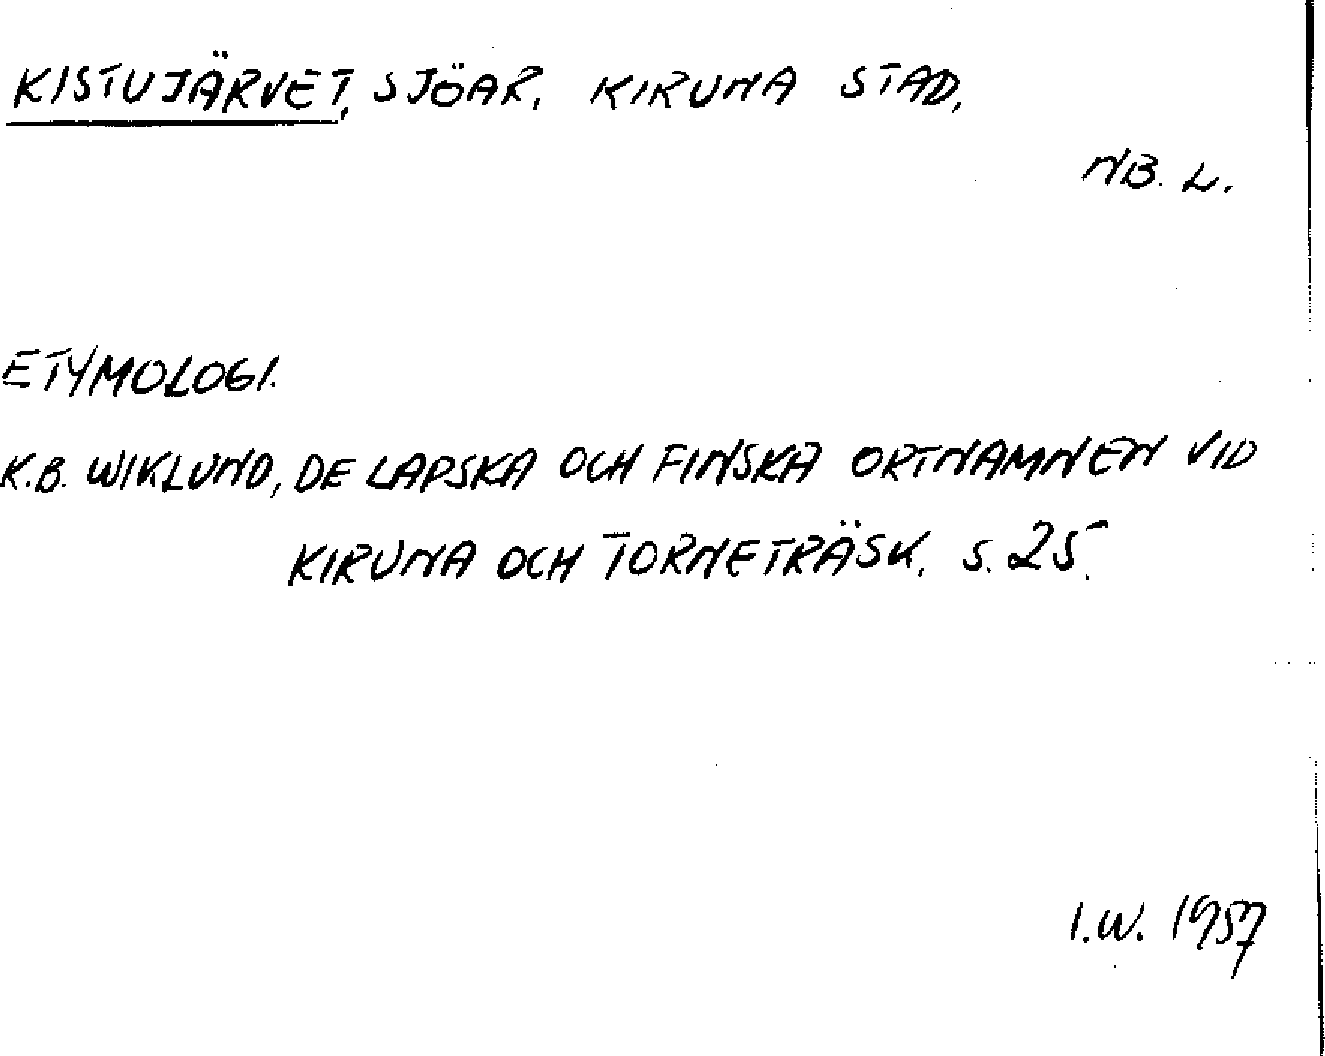 KISTUJÄRVET, SJÖAR. KIRUNA STAD,
NB. L.
ETYMOLOGI.
K.B. WIKLUND, DE LAPSKA OCH FINSKA ORTNAMNEN VID
KIRUNA OCH TORNETRÄSK. S. 25.
I.W. 1957